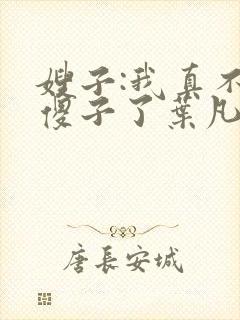 嫂子:我真不
傻子了葉凡
唐長安城